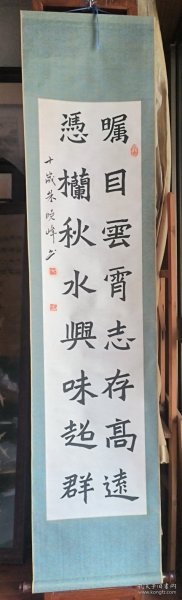 矚目雲霄志存高遠
憑欄秋水興味超群
十歲朱曉峰書